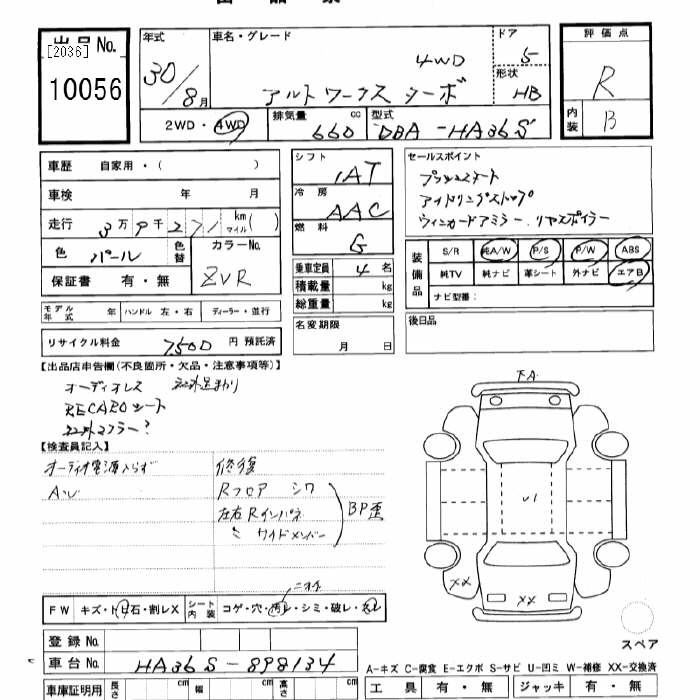 出品No.
[2036]
10056
年式
30/8月
車名・グレード
4WD
アルトワークス ターボ
ドア
5
形状
HB
評価点
R
内装
B
2WD・4WD
排気量
660
cc
型式
DBA-HA36S
車歴 自家用・( )
車検 年 月
走行 3万9千271 km マイル( )
色 パール
色替
カラーNo.
ZVR
保証書 有・無
モデル年式 年 ハンドル 左・右 ディーラー・並行
リサイクル料金 7500 円 預託済
シフト
IAT
冷房
AAC
燃料
G
乗車定員 4 名
積載量 kg
総重量 kg
名変期限
月 日
セールスポイント
プッシュスタート
アイドリングストップ
ウィンカードアミラー、リヤスポイラー
装備品
S/R 純A/W P/S P/W ABS
純TV 純ナビ 革シート 外ナビ エアB
ナビ型番：
後日品
【出品店申告欄(不良箇所・欠品・注意事項等)】
オーディオレス 社外足まわり
RECAROシート
社外マフラー?
【検査員記入】
オーディオ電源入らず
AU
修復
Rフロア シワ
左右Rインパネ
〃 サイドメンバー
BP歪
FA
U1
XX
XX
スペア
ニオイ
FW キズ・トビ石・割レX
シート内装 コゲ・穴・汚レ・シミ・破レ・スレ
登録No.
車台No. HA36S-898134
車庫証明用 長さ cm 幅 cm 高さ cm
A-キズ C-腐食 E-エクボ S-サビ U-凹ミ W-補修 XX-交換済
工具 有・無 ジャッキ 有・無